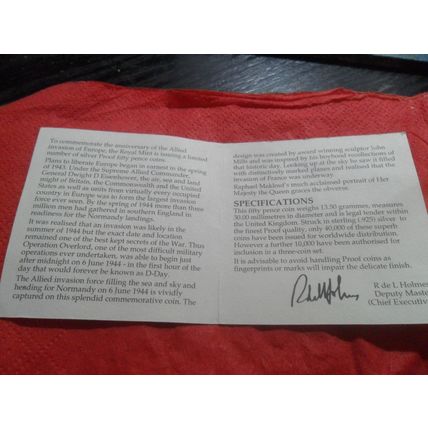 To commemorate the anniversary of the Allied
invasion of Europe, the Royal Mint is issuing a limited
number of silver Proof fifty pence coins.
Plans to liberate Europe began in earnest in the spring
of 1943. Under the Supreme Allied Commander,
General Dwight D Eisenhower, the air, sea and land
might of Britain, the Commonwealth and the United
States as well as units from virtually every occupied
country in Europe was to form the largest invasion
force ever seen. By the spring of 1944 more than three
million men had gathered in southern England in
readiness for the Normandy landings.
It was realised that an invasion was likely in the
summer of 1944 but the exact date and location
remained one of the best kept secrets of the War. Thus
Operation Overlord, one of the most difficult military
operations ever undertaken, was able to begin just
after midnight on 6 June 1944 - in the first hour of the
day that would forever be known as D-Day.
The Allied invasion force filling the sea and sky and
heading for Normandy on 6 June 1944 is vividly
captured on this splendid commemorative coin. The
design was created by award winning sculptor John
Mills and was inspired by his boyhood recollections of
that historic day. Looking up at the sky he saw it filled
with distinctively marked planes and realised that the
invasion of France was underway.
Raphael Maklouf's much acclaimed portrait of Her
Majesty the Queen graces the obverse.
SPECIFICATIONS
This fifty pence coin weighs 13.50 grammes, measures
30.00 millimetres in diameter and is legal tender within
the United Kingdom. Struck in sterling (.925) silver to
the finest Proof quality, only 40,000 of these superb
coins have been issued for worldwide distribution.
However a further 10,000 have been authorised for
inclusion in a three-coin set.
It is advisable to avoid handling Proof coins as
fingerprints or marks will impair the delicate finish.
R de L Holmes
Deputy Master
(Chief Executive